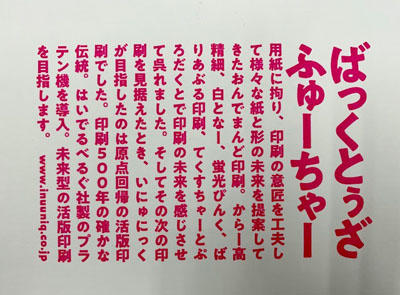 ばっくとぅざ
ふゅーちゃー
用紙に拘り、印刷の意匠を工夫し
て様々な紙と形の未来を提案して
きたおんでまんど印刷。からー高
精細、白となー、蛍光ぴんく、ば
りあぶる印刷、てくすちゃーとぷ
ろだくとで印刷の未来を感じさせ
て呉れました。そしてその次の印
刷を見据えたとき、いにゅにっく
が目指したのは原点回帰の活版印
刷でした。印刷500年の確かな
伝統。はいでるべるぐ社製のプラ
テン機を導入。未来型の活版印刷
を目指します。 www.inuuniq.co.jp